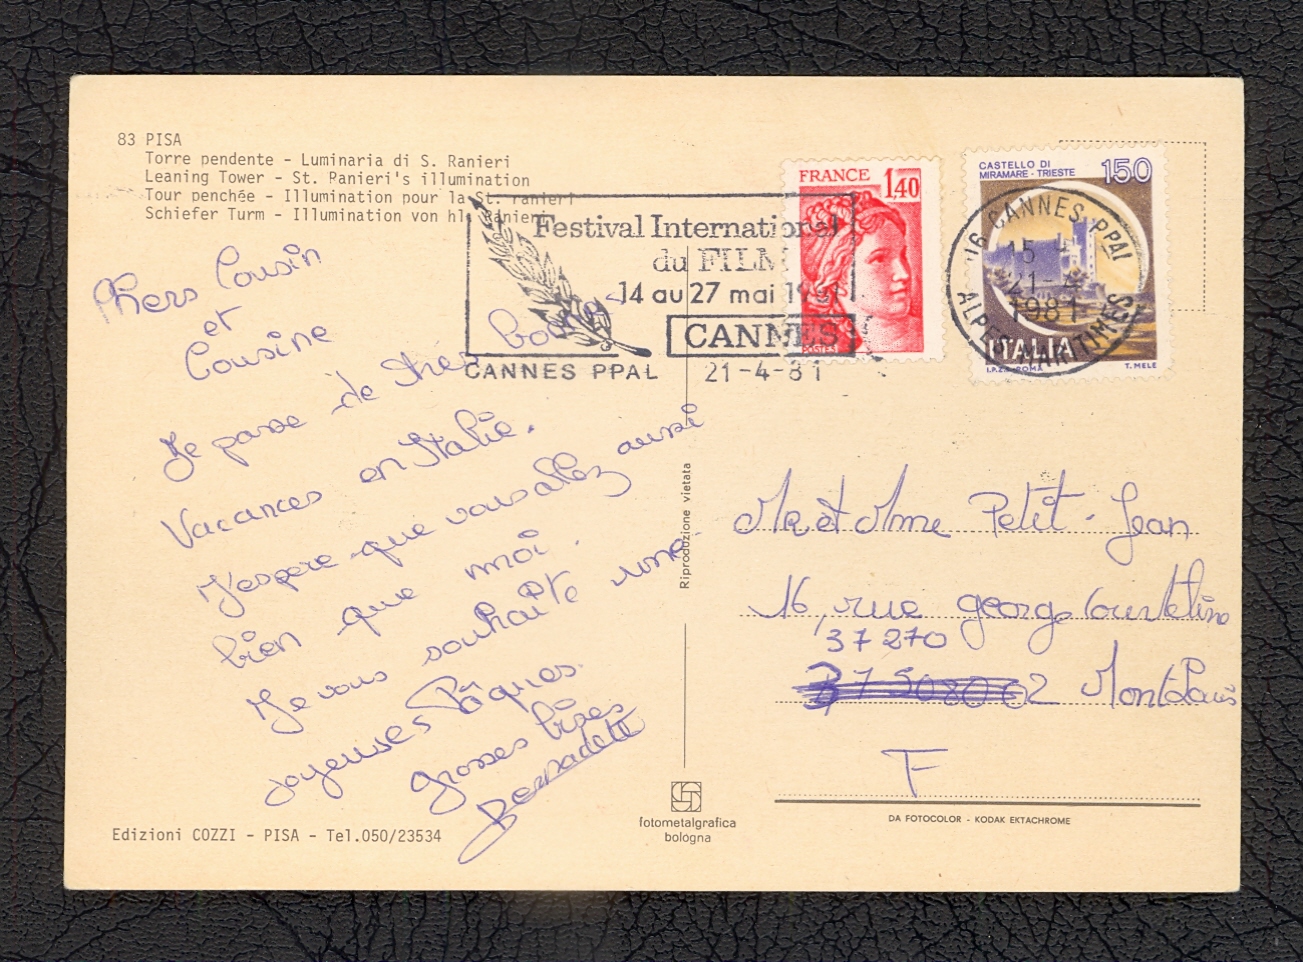 83 PISA
Torre pendente - Luminaria di S. Ranieri
Leaning Tower - St. Panieri's illumination
Tour penchée - Illumination pour la St. ranieri
Schiefer Turm - Illumination von hl. Ranieri
Chers Cousin
et
Cousine
Je passe de
Vacances en Italie.
J'espere que vous allez aussi
bien que moi.
Je vous souhaite une
joyeuses Pâques.
grosses bises
Bernadette
Edizioni COZZI - PISA - Tel.050/23534
Festival International
du FILM
14 au 27 mai 1981
CANNES
CANNES PPAL 21-4-81
FRANCE 1,40
POSTES
CASTELLO DI
MIRAMARE - TRIESTE 150
ITALIA
I.P.Z.S. ROMA T. MELE
06 CANNES PPAL
15 H
21-4
1981
ALPES MARITIMES
Riproduzione vietata
Mr et Mme Petit-Jean
16, rue george Courteline
37270
Montlouis
F
fotometalgrafica
bologna
DA FOTOCOLOR - KODAK EKTACHROME